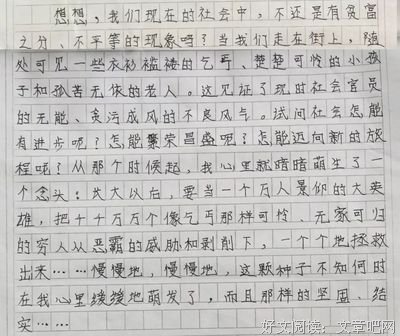 想想，我们现在的社会中，不还是有贫富
之分、不平等的现象吗？当我们走在街上，随
处可见一些衣衫褴褛的乞丐、楚楚可怜的小孩
子和孤苦无依的老人。这见证了现时社会官员
的无能、贪污成风的不良风气。试问社会怎能
有进步呢？怎能繁荣昌盛呢？怎能迈向新的旅
程呢？从那个时候起，我心里就暗暗萌生了一
个念头：长大以后，要当一个万人景仰的大英
雄，把千千万万个像乞丐那样可怜、无家可归
的穷人从恶霸的威胁和剥削下，一个个地拯救
出来……慢慢地，慢慢地，这颗种子不知何时
在我心里缓缓地萌发了，而且那样的坚固、结
实……
好文阅读：文章吧网